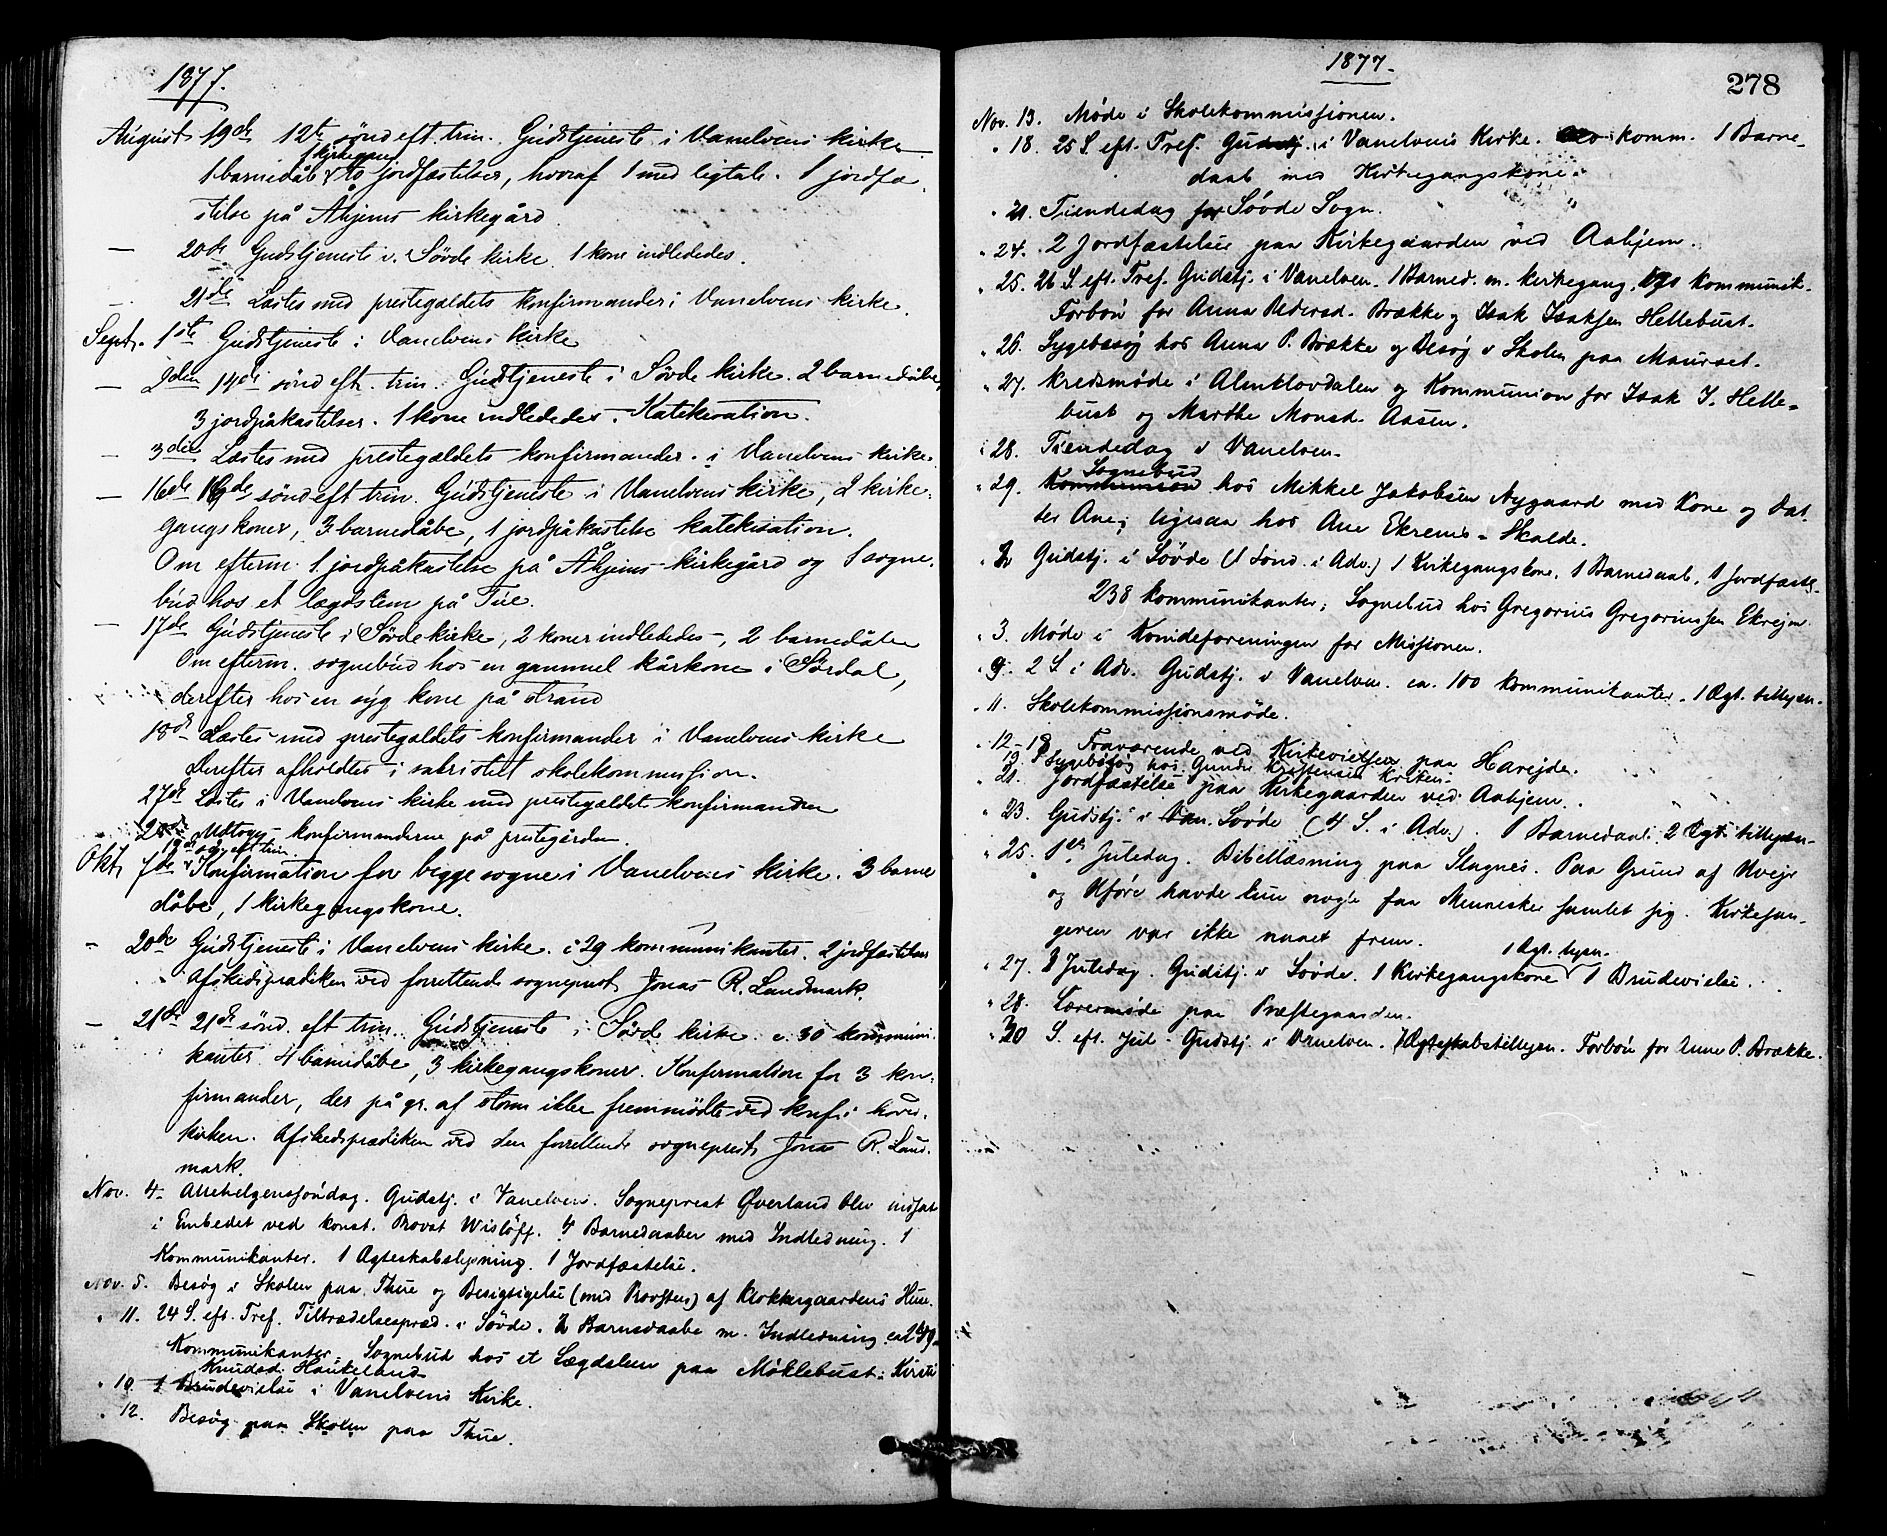 1877.
August 19de 12te sönd eft. trin. Gudstjeneste i Vanelvens kirke
1 kirkegang
1 barnedåb & to jordfæstelser, hvoraf 1 med ligtale. 1 jordfæ-
stelse på Åhjems kirkegård.
— 20de Gudstjeneste i Sövde kirke. 1 kone indlededes.
— 21de Læstes med prestegældets konfirmander i Vanelvens kirke.
Sept. 1ste Gudstjeneste i Vanelvens kirke
— 2den 14de sönd eft. trin. Gudstjeneste i Sövde kirke. 2 barnedåbe,
3 jordpåkastelser. 1 kone indlededes. Katekisation.
— 3die Læstes med prestegældets konfirmander i Vanelvens kirke.
— 16de 16de sönd eft trin. Gudstjeneste i Vanelvens kirke, 2 kirke-
gangskoner, 3 barnedåbe, 1 jordpåkastelse katekisation.
Om efterm. 1 jordpåkastelse på Åhjems kirkegård og 1 sogne-
bud hos et lægdslem på Tue.
— 17de Gudstjeneste i Sövde kirke, 2 koner indlededes, 2 barnedåbe
Om efterm. sognebud hos en gammel kårkone i Sördal,
derefter hos en syg kone på Strand
18de Læstes med prestegældets konfirmander i Vanelvens kirke
Derefter afholdtes i sakristiet skolekommission.
27de Læstes i Vanelvens kirke med prestegældets konfirmander
28de Modtoges konfirmanderne på prestegården.
19de søn eft trin
Okt. 7de Konfirmation for begge sogne i Vanelvens kirke. 3 barne
dåbe, 1 kirkegangskone.
— 20de Gudstjeneste i Vanelvens kirke. c 29 kommunikanter. 2 jordfæstelser
Afskedsprædiken ved forrettende sogneprest Jonas R. Landmark.
— 21de 21de sönd. eft trin. Gudstjeneste i Sövde kirke c. 30 kommuni-
kanter. 4 barnedåbe, 3 kirkegangskoner. Konfirmation for 3 kon-
firmander, der på gr. af storm ikke fremmödte ved konf. i hoved-
kirken. Afskedsprædiken ved den forrettende sogneprest Jonas R. Land-
mark.
Nov. 4. Allehelgenssöndag. Gudstj. i Vanelven. Sogneprest Øverland blev indsat
i Embedet ved konst. Provst Wislöff. 4 Barnedaaber med Indledning. 1
Kommunikanter. 1 Ægteskabslysning. 1 Jordfæstelse.
Nov. 5. Besög i Skolen paa Thue og Besigtigelse (med Provsten) af Klokkergaardens Huse.
" 11. 24 S. eft. Tref. Tiltrædelsespræd. i Sövde. 2 Barnedaabe m. Indledning
Kommunikanter. Sognebud hos et Lægdslem paa Möklebust: Kirsti
Knudsd. Haukeland
" 10. 1 Brudevielse i Vanelvens Kirke.
" 12. Besög paa Skolen paa Thue.
1877.
278
Nov. 13. Möde i Skolekommissjonen.
" 18. 25 S. eft. Tref. Gudstj. i Vanelvens Kirke. komm. 1 Barne-
daab med Kirkegangskone.
" 21. Tiendedag for Sövde Sogn.
" 24. 2 Jordfæstelser paa Kirkegaarden ved Aahjem.
" 25. 26 S. eft. Tref. Gudstj. i Vanelven. 1 Barned. m. kirkegang. kommunik.
Forbön for Anna Pedersd. Brække og Isak Isaksen Hellebust.
" 26. Sygebesög hos Anna P. Brække og Besög i Skolen paa Maurset.
" 27. Kredsmöde i Almklovdalen og Kommunion for Isak I. Helle-
bust og Marthe Monsd. Aasen.
" 28. Tiendedag i Vanelven.
Sognebud
" 29. Kommunion hos Mikkel Jakobsen Nygaard med Kone og Dat-
ter Ane; ligesaa hos Ane Ekrems-Skalde.
" 2 Gudstj. i Sövde (1 Sönd. i Adv.) 1 Kirkegangskone. 1 Barnedaab, 1 Jordfæstelse.
238 kommunikanter; Sognebud hos Gregorius Gregoriussen Ekrejm.
" 3. Möde i Kvindeforeningen for Missjonen.
" 9. 2 S. i Adv. Gudstj. i Vanelven. ca. 100 kommunikanter. 1 Ægt. tillysn.
" 11. Skolekommissjonsmöde.
" 12-18 Fraværende ved Kirkevielsen paa Harejde.
19 Sygebesög hos Gunder
" 21. Jordfæstelse paa Kirkegaarden ved Aahjem.
" 23. Gudstj. i Van. Sövde (4 S. i Adv.). 1 Barnedaab. 2 Ægt. tillysn.
" 25. 1ste Juledag. Bibellæsning paa Slagnes. Paa Grund af Uvejr
og Uföre havde kun nogle faa Mennesker samlet sig. Kirkesan-
geren var ikke naaet frem.
1 Ægt. lysn.
" 27. 3 Juledag. Gudstj. i Sövde. 1 Kirkegangskone 1 Brudevielse.
" 28. Lærermöde paa Præstegaarden.
" 30 S. eft. Jul. Gudstj. i Vanelven. 1 Ægteskabstillysn. Forbön for Anne P. Brække.